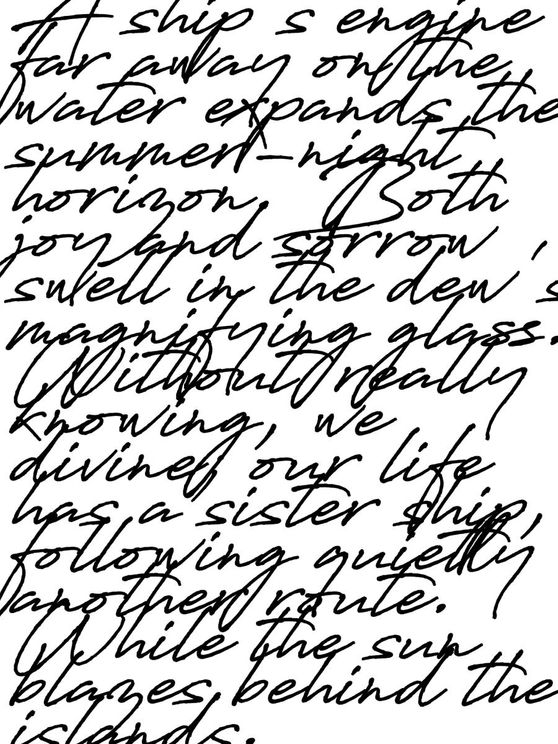 A ship's engine
far away on the
water expands the
summer-night
horizon. Both
joy and sorrow
swell in the dew's
magnifying glass.
Without really
knowing, we
divine; our life
has a sister ship,
following quietly
another route.
While the sun
blazes behind the
islands.